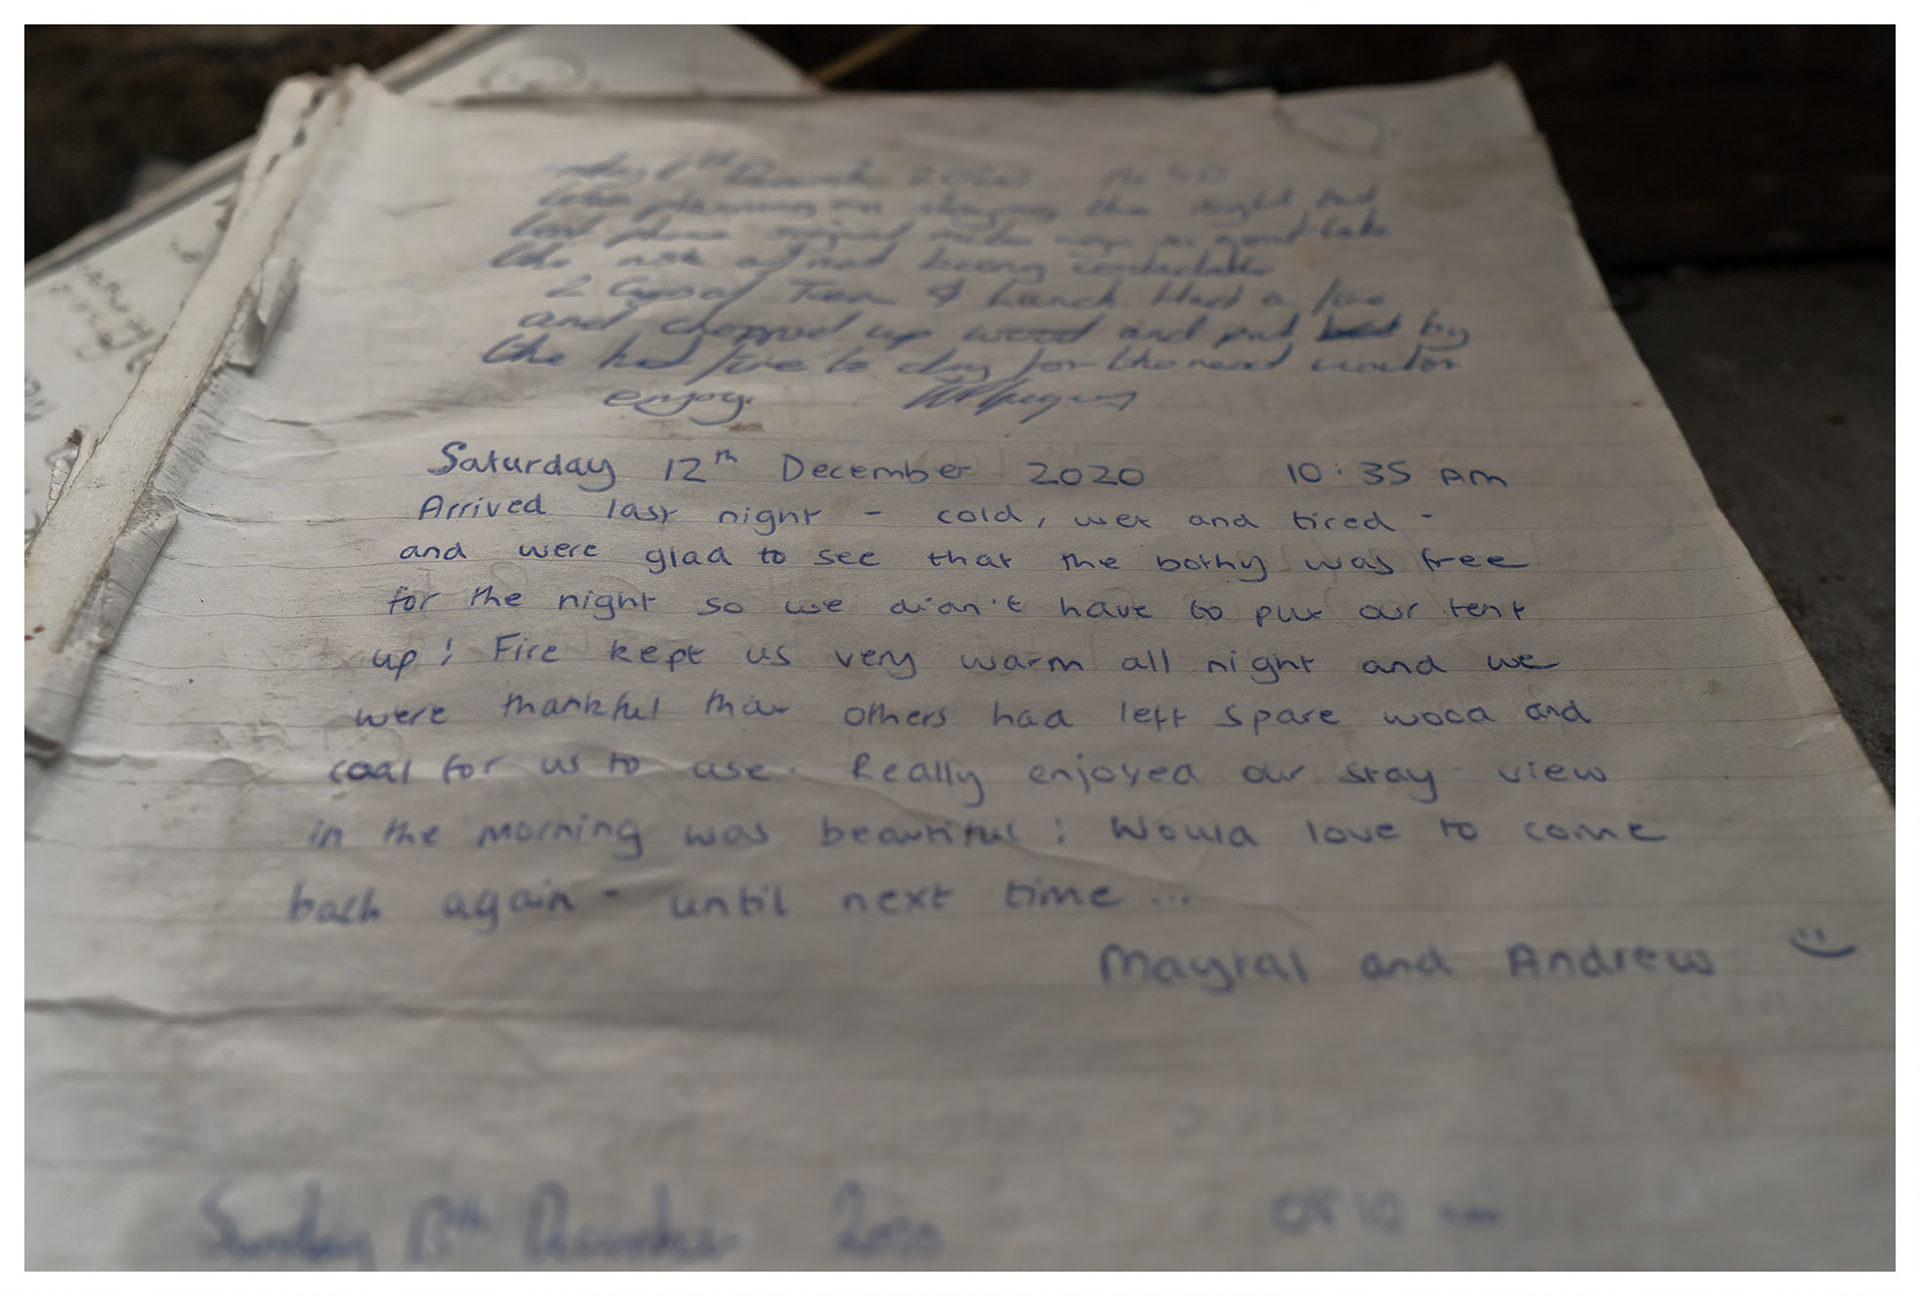 December 2020
planning on staying the night but
phone signal
the risk of not being contactable
2 Cups of Tea & Lunch. Had a fire
and chopped up wood and put by
the hot fire to dry for the next visitor
enjoy.
Saturday 12th December 2020 10:35 AM
Arrived last night - cold, wet and tired -
and were glad to see that the bothy was free
for the night so we didn't have to put our tent
up! Fire kept us very warm all night and we
were thankful that others had left spare wood and
coal for us to use. Really enjoyed our stay - view
in the morning was beautiful! Would love to come
back again - until next time...
and Andrew
Sunday 13th December 2020